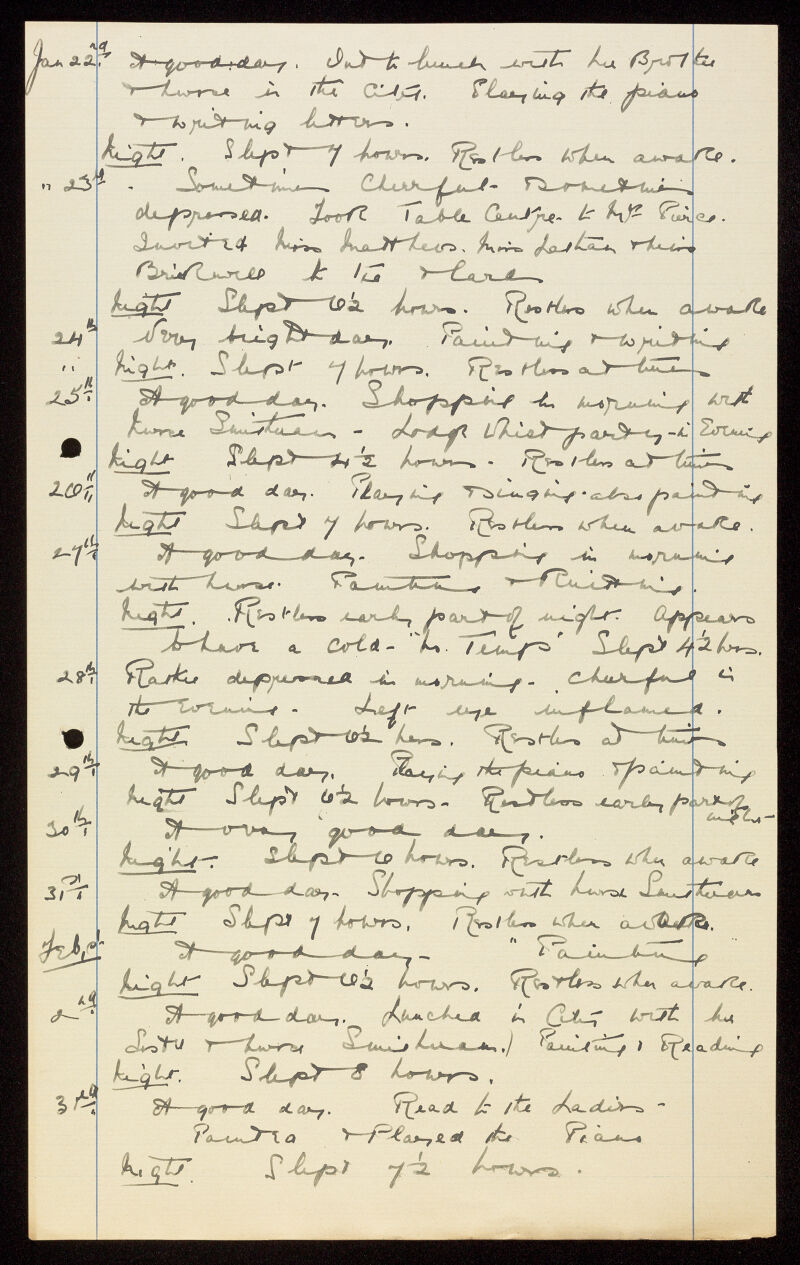 Jan 22nd A good day. Out to lunch with her Brother
& nurse in the City. Playing the piano
& writing letters.
Night. Slept 7 hours. Restless when awake.
" 23rd. Sometimes cheerful - sometimes
depressed. Took Table Centre to Mrs Pierce.
Invited Miss Matthews. Miss & Miss
to tea & cards
Night Slept 6½ hours. Restless when awake
24th Very bright day. Painting & writing
" Night. Slept 7 hours. Restless at times
25th A good day. Shopping in morning with
nurse - whist party - in Evening
Night Slept 4½ hours - Restless at times
26th A good day. Playing & singing - also painting
Night Slept 7 hours. Restless when awake.
27th A good day. Shopping in morning
with nurse. Painting & Knitting.
Night. Restless early part of night. Appears
to have a cold - "No. Temp" Slept 4½ hrs.
28th Rather depressed in morning - cheerful in
the evening - Left eye inflamed.
Night Slept 6½ hrs. Restless at times
29th A good day. Playing the piano & painting
Night Slept 6½ hours - Restless early part of
night -
30th A very good day.
Night. Slept 6 hours. Restless when awake
31st A good day - Shopping with nurse
Night Slept 7 hours. Restless when awake.
Feb 1st A good day - " Painting
Night Slept 6½ hours. Restless when awake.
2nd A good day. Lunched in City with her
Sister & nurse Painting & Reading
Night. Slept 8 hours.
3rd A good day. Read to the Ladies -
Painted & Played the Piano
Night. Slept 7½ hours.